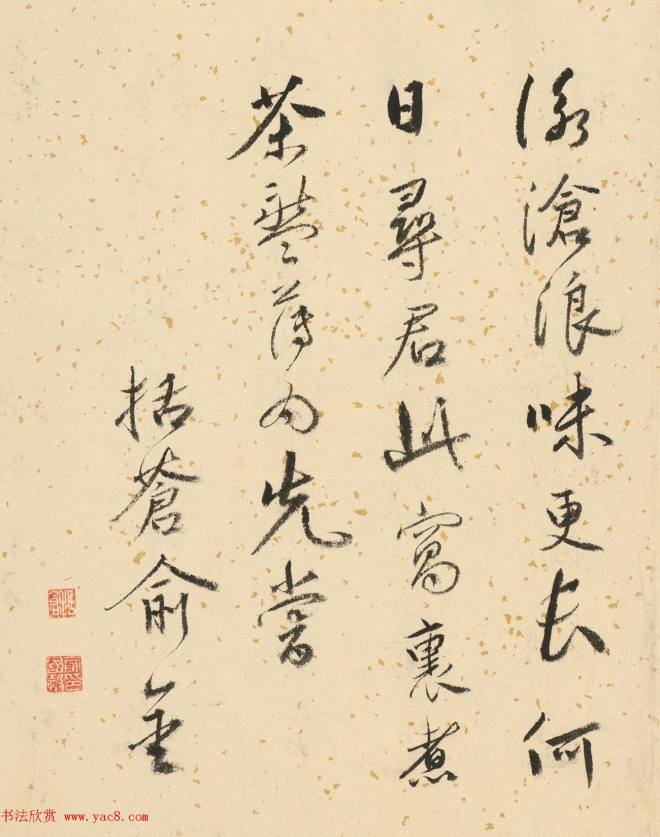 滄浪味更長何
日尋君此窩裏煮
茶先嘗
括蒼俞
书法欣赏 www.yac8.com